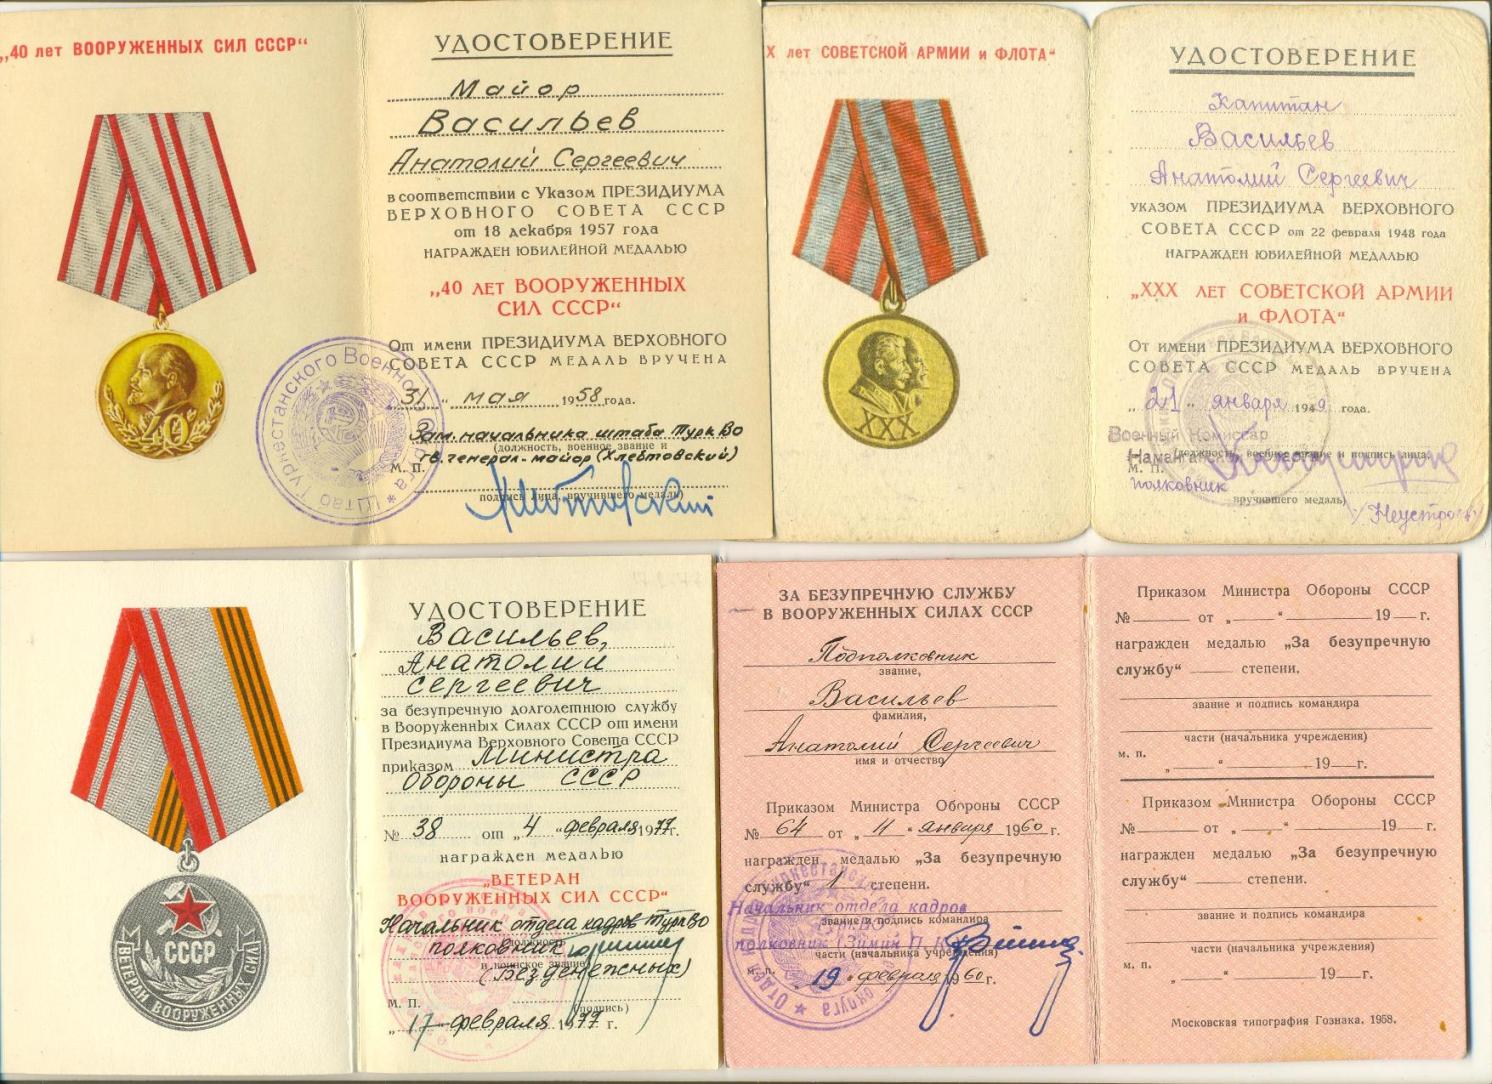 „40 лет ВООРУЖЕННЫХ СИЛ СССР“
40
УДОСТОВЕРЕНИЕ
Майор
Васильев
Анатолий Сергеевич
в соответствии с Указом ПРЕЗИДИУМА
ВЕРХОВНОГО СОВЕТА СССР
от 18 декабря 1957 года
НАГРАЖДЕН ЮБИЛЕЙНОЙ МЕДАЛЬЮ
„40 ЛЕТ ВООРУЖЕННЫХ
СИЛ СССР“
От имени ПРЕЗИДИУМА ВЕРХОВНОГО
СОВЕТА СССР МЕДАЛЬ ВРУЧЕНА
„31“ мая 1958 года.
Зам. начальника штаба ТуркВО
(должность, военное звание и
гв. генерал-майор (Хлебтовский)
М. П.
подпись лица, вручившего медаль)
Штаб Туркестанского Военного Округа
X лет СОВЕТСКОЙ АРМИИ и ФЛОТА“
XXX
УДОСТОВЕРЕНИЕ
Капитан
Васильев
Анатолий Сергеевич
УКАЗОМ ПРЕЗИДИУМА ВЕРХОВНОГО
СОВЕТА СССР от 22 февраля 1948 года
НАГРАЖДЕН ЮБИЛЕЙНОЙ МЕДАЛЬЮ
„XXX ЛЕТ СОВЕТСКОЙ АРМИИ
и ФЛОТА“
От имени ПРЕЗИДИУМА ВЕРХОВНОГО
СОВЕТА СССР МЕДАЛЬ ВРУЧЕНА
„21“ января 1949 года.
Военный Комиссар
(должность, военное звание и подпись лица,
М. П.
полковник
вручившего медаль)
СССР
ВЕТЕРАН ВООРУЖЕННЫХ СИЛ
УДОСТОВЕРЕНИЕ
Васильев,
Анатолий
Сергеевич
за безупречную долголетнюю службу
в Вооруженных Силах СССР от имени
Президиума Верховного Совета СССР
приказом Министра
Обороны СССР
№ 38 от „4“ февраля 1977 г.
награжден медалью
„ВЕТЕРАН
ВООРУЖЕННЫХ СИЛ СССР“
Начальник отдела кадров ТуркВО
(должность
полковник
и воинское звание)
(Безденежных)
М. П.
(подпись)
„17“ февраля 1977 г.
ЗА БЕЗУПРЕЧНУЮ СЛУЖБУ
В ВООРУЖЕННЫХ СИЛАХ СССР
Подполковник
звание,
Васильев
фамилия,
Анатолий Сергеевич
имя и отчество
Приказом Министра Обороны СССР
№ 64 от „4“ января 1960 г.
награжден медалью „За безупречную
службу“ 1 степени.
Начальник отдела кадров
звание и подпись командира
полковник (Зимин П.
части (начальника учреждения)
м. п.
„19“ февраля 1960 г.
Приказом Министра Обороны СССР
№ от „ “ 19 г.
награжден медалью „За безупречную
службу“ степени.
звание и подпись командира
части (начальника учреждения)
м. п.
„ “ 19 г.
Приказом Министра Обороны СССР
№ от „ “ 19 г.
награжден медалью „За безупречную
службу“ степени.
звание и подпись командира
части (начальника учреждения)
м. п.
„ “ 19 г.
Московская типография Гознака. 1958.